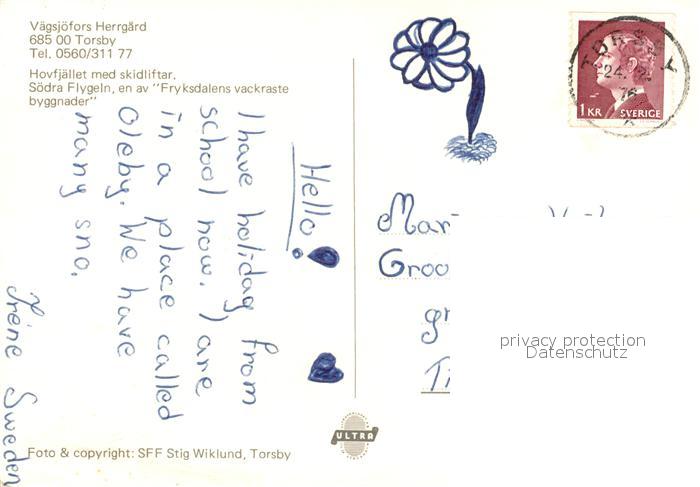 Vägsjöfors Herrgård
685 00 Torsby
Tel. 0560/311 77
Hovfjället med skidliftar.
Södra Flygeln, en av "Fryksdalens vackraste
byggnader"
Hello!
I have holiday from
school now. I are
in a place called
Oleby. We have
many sno.
Iréne Sweden
TORSBY
24.
76
1 KR SVERIGE
Mar
Groo
gr
Ti
privacy protection
Datenschutz
ULTRA
Foto & copyright: SFF Stig Wiklund, Torsby